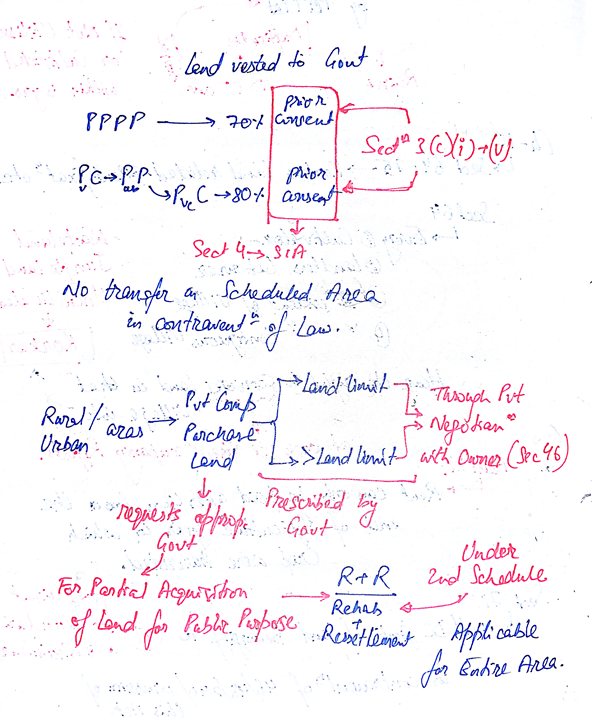 Land vested to Govt
PPPP → 70% prior consent
Sectⁿ 3(c)(i)→(v)
PvC → PubP → PvtC → 80% prior consent
Sect 4 → SIA
No transfer in Scheduled Area
in contraventⁿ of Law.
Rural/Urban areas → Pvt Comp Purchase Land
→ Land limit
→ >Land limit
Through Pvt
Negotianⁿ
with Owner (Sec 46)
Prescribed by
Govt
requests approp.
Govt
For Partial Acquisition
of Land for Public Purpose
R+R
Rehab
+
Ressetlement
Under
2nd Schedule
Applicable
for Entire Area.